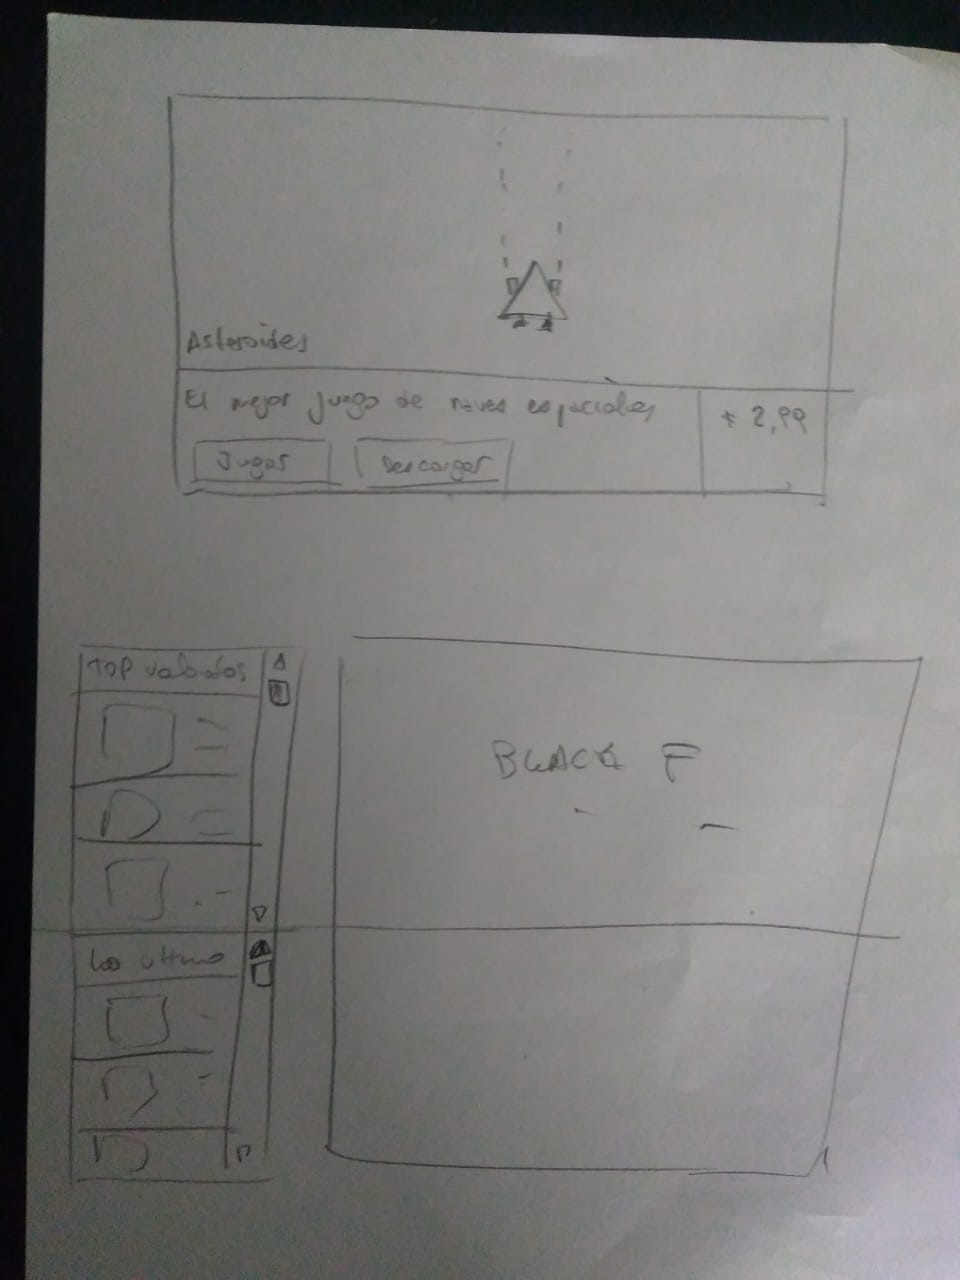 Asteroides
El mejor juego de naves espaciales
2,99
Jugar
Descargar
TOP valorados
Lo ultimo
BLACK F